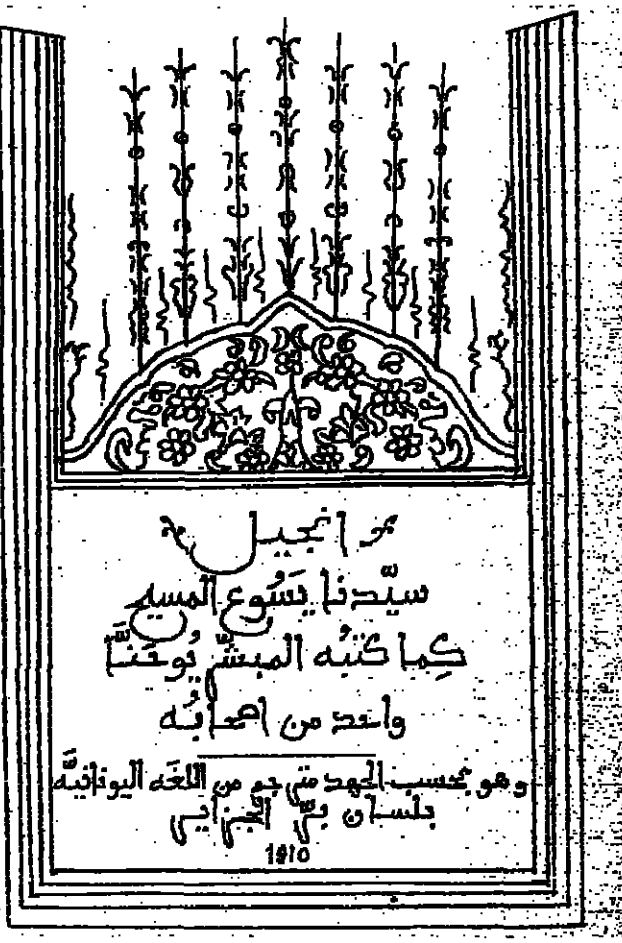 انجيل
سيّدنا يَسُوع المسيح
كِما كتبُه المبشّر يُوحَنّا
واحد من اصحابُه
وهو بحسب الجهد مترجم من اللغَه اليونانيَّه
بلسان برّ الجزاير
1910